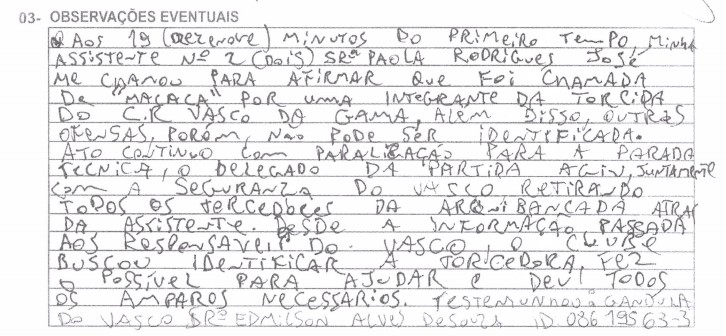 03- OBSERVAÇÕES EVENTUAIS
Aos 19 (dezenove) minutos do primeiro tempo, minha
assistente nº 2 (dois) srª Paola Rodrigues José
me chamou para afirmar que foi chamada
de "macaca" por uma integrante da torcida
do C.R Vasco da Gama, além disso, outras
ofensas, porém, não pode ser identificada.
Ato contínuo com paralização para a parada
técnica, o delegado da partida agiu, juntamente
com a seguranza do Vasco retirando
todos os torcedores da arquibancada atrás
da assistente. Desde a informação passada
aos responsáveis do Vasco, o clube
buscou identificar a torcedora, fez
o possível para ajudar e deu todos
os amparos necessários. Testemunhou o gandula
do Vasco srº Edmilson Alves de Souza ID 086 195 63-3